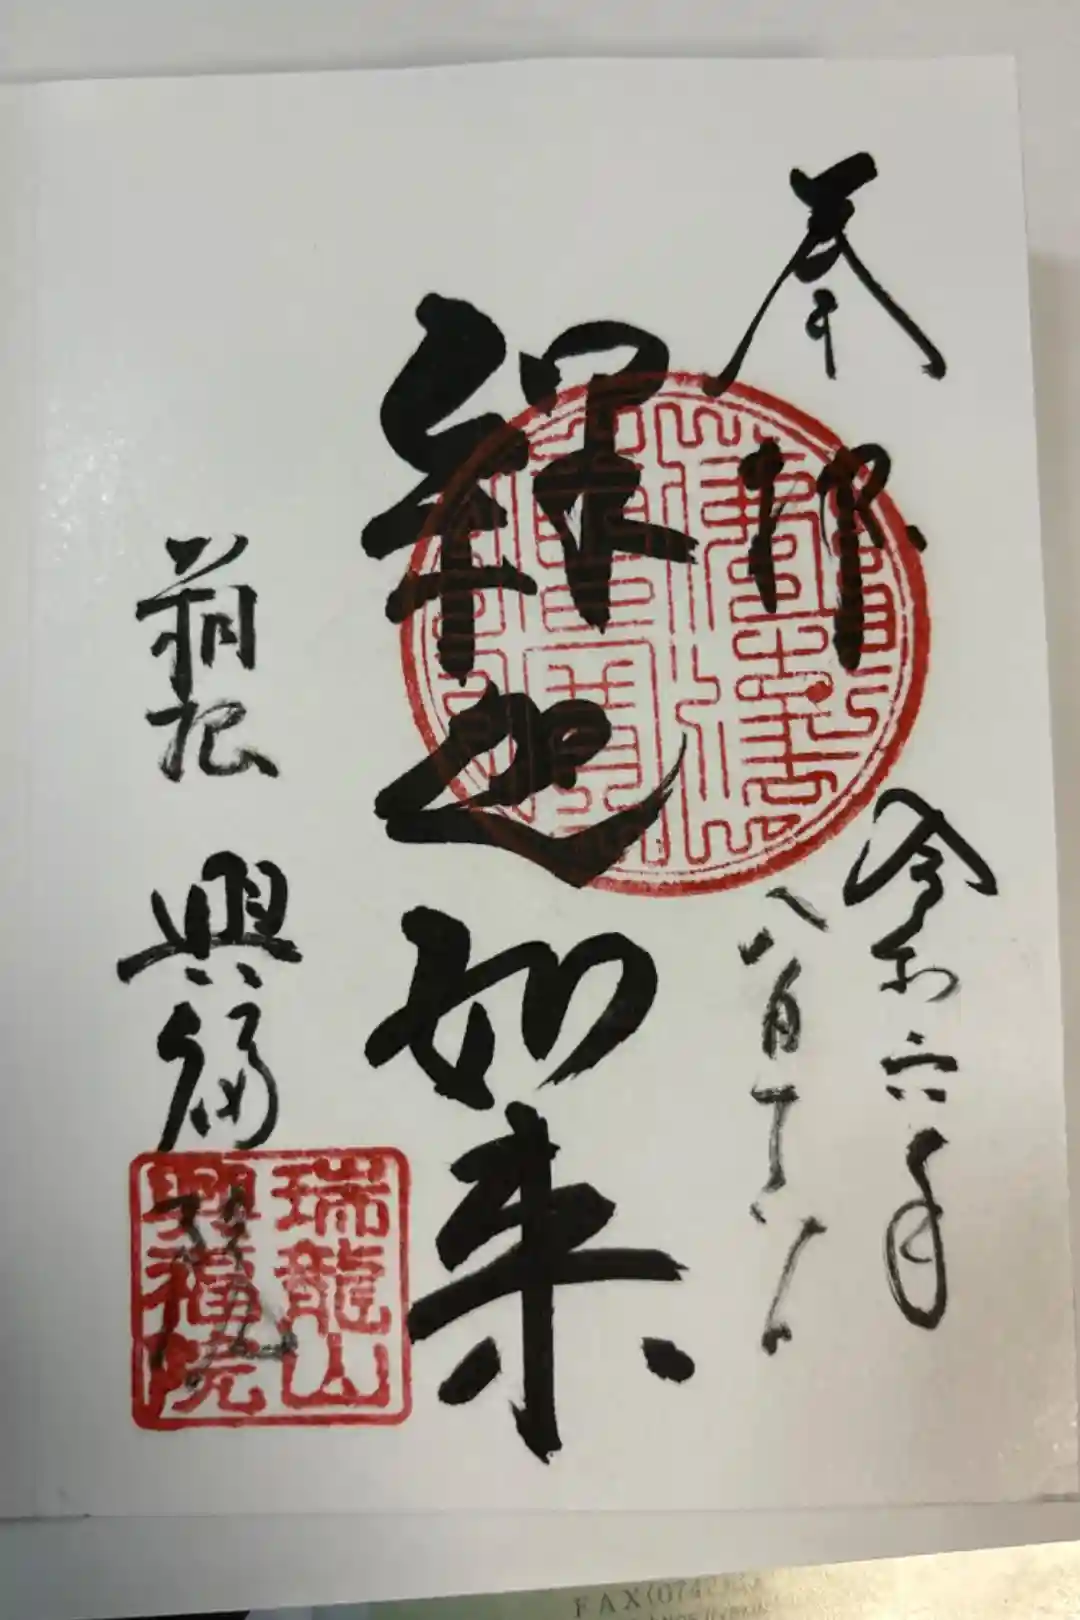 奉拝
令和六年
八月十八日
釋迦如来
興福院
瑞龍山
興福院